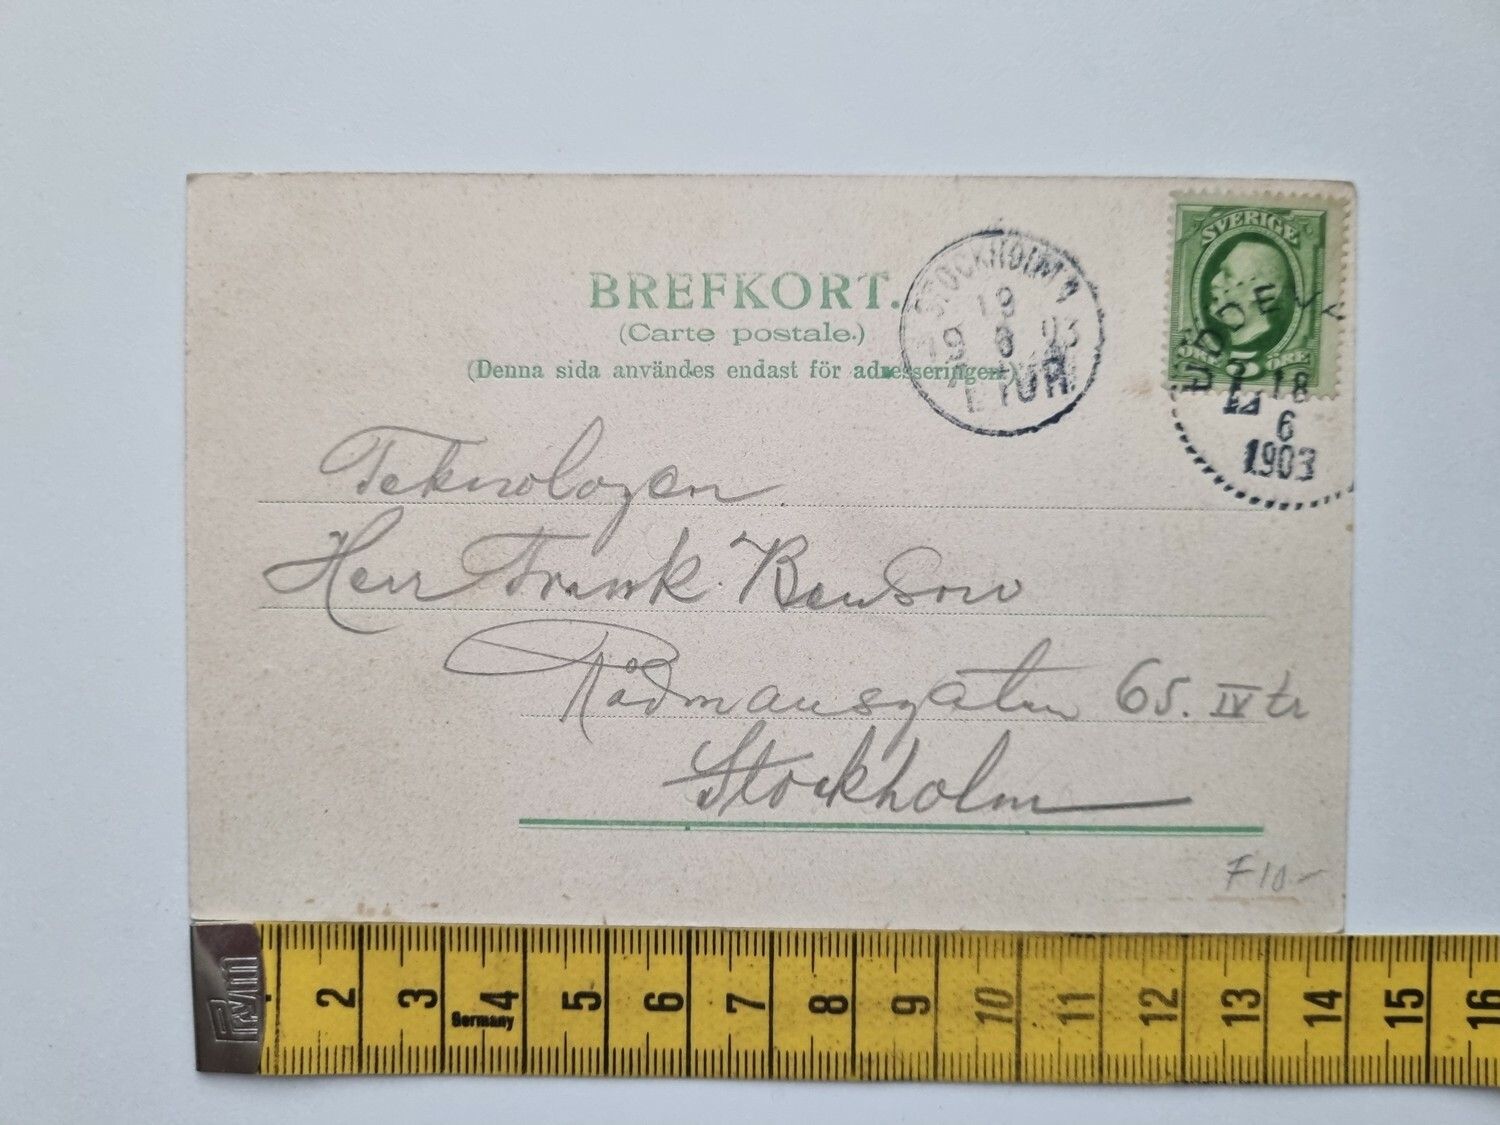 BREFKORT.
(Carte postale.)
(Denna sida användes endast för adresseringen.)
STOCKHOLM
19 6 03
TUR
SVERIGE
ÖRE 5 ÖRE
18
6
1903
Teknologen
Herr Frank Benson
Rådmansgatan 65. IV tr
Stockholm
F 10.-
Prym
2 3 4 5 6 7 8 9 10 11 12 13 14 15 16
Germany